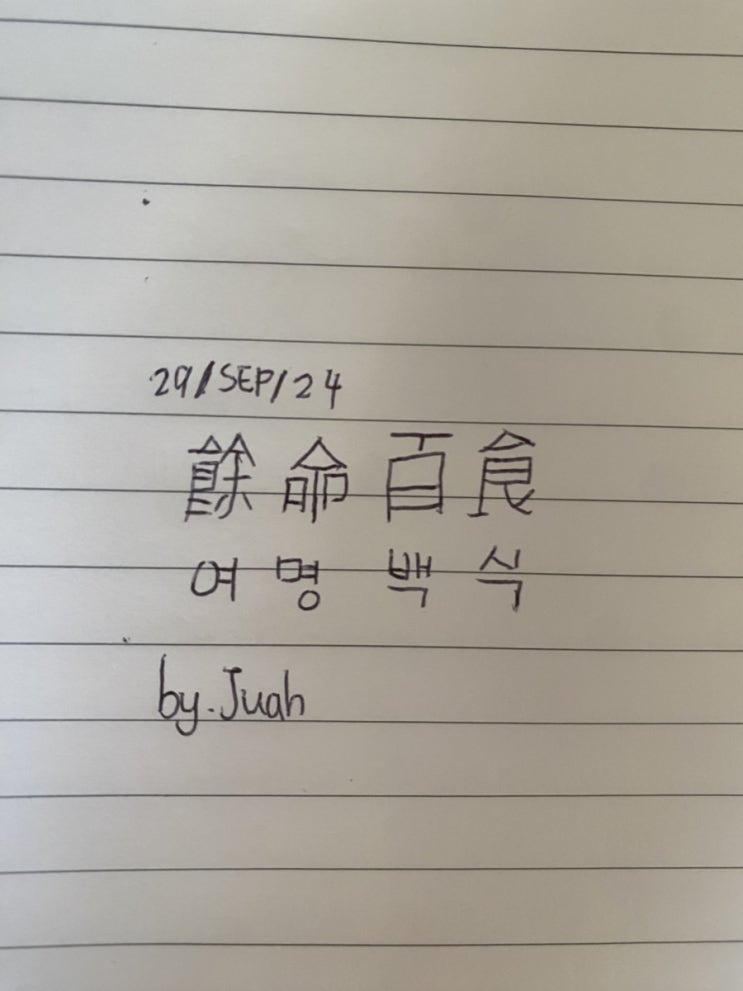 29/SEP/24
餘命百食
여명백식
by.Juah